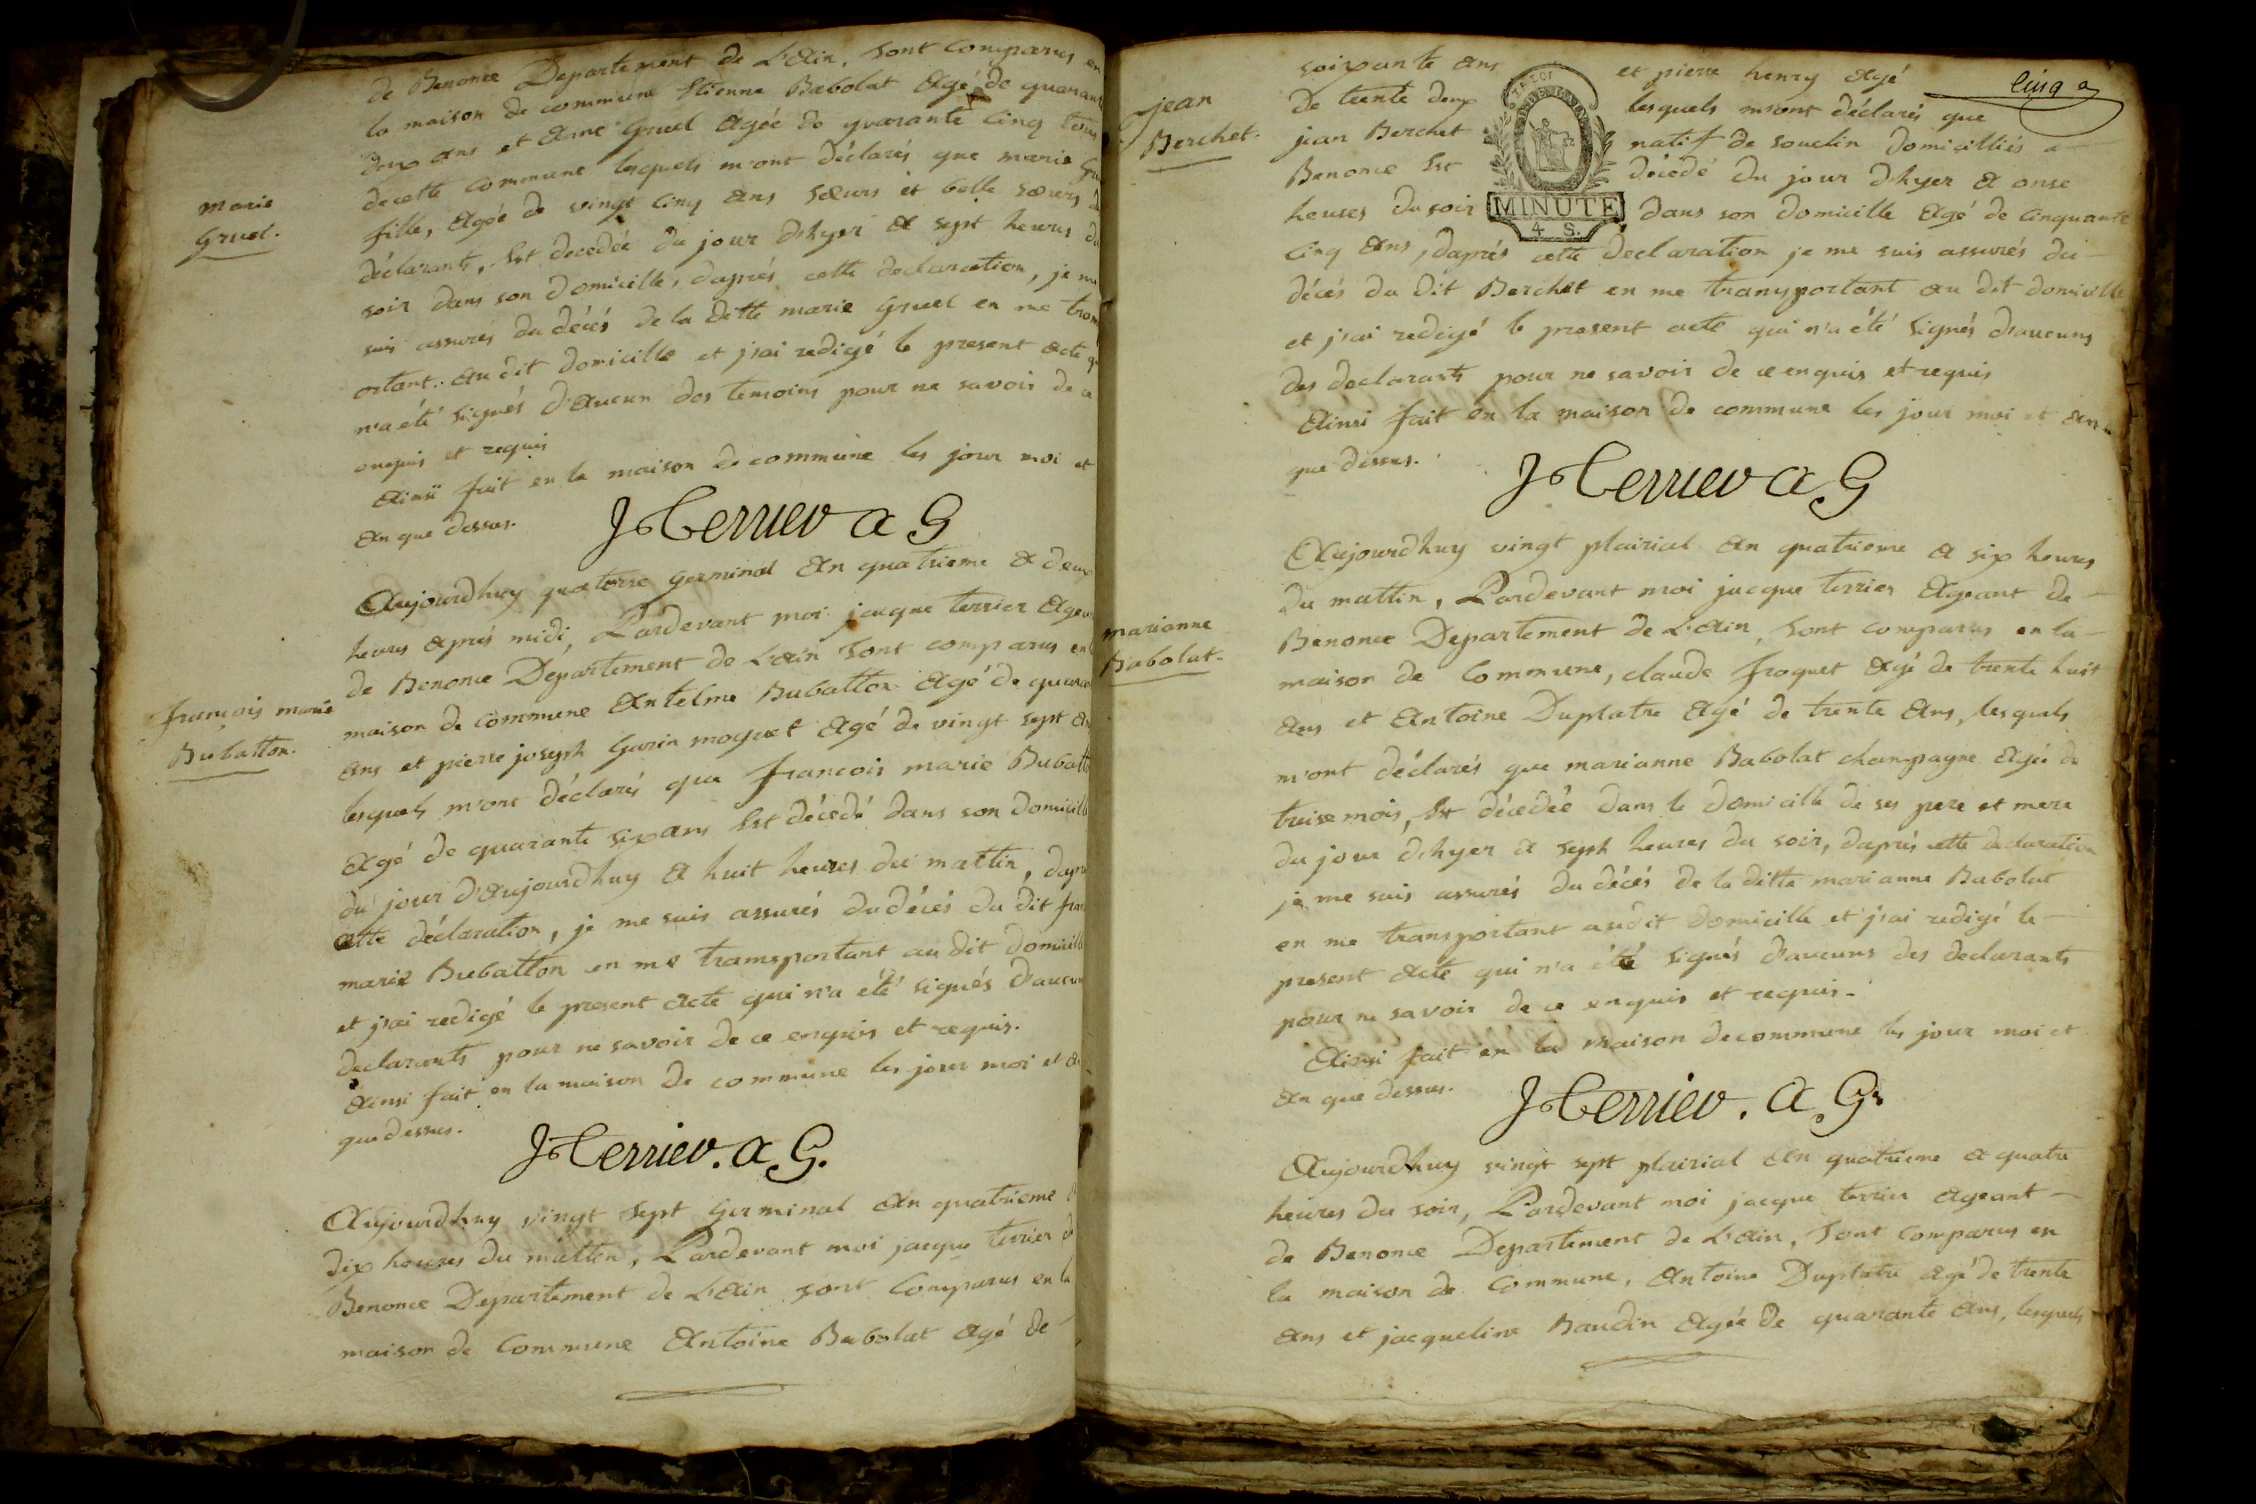 de Benonce Departement de L'ain, sont comparus en
la maison de commune Etienne Babolat agé de quarante
deux ans et anne Gruel agée de quarante cinq tous
de cette commune lesquels m'ont déclarés que marie
marie
Gruel.
fille, agée de vingt cinq ans sœurs et belle sœurs
déclarants, Est decedée du jour dhyer a sept heures du
soir dans son domicille, daprés cette declaration, je me
suis assurés du décés de la ditte marie Gruel en me
ortant. au dit domicille et j'ai redigé le present acte
n'a été signés d'aucun des temoins pour ne savoir de ce
enquis et requis
ainsi fait en la maison de commune les jour moi et
an que dessus.
J Terrier a G
aujourdhuy quatorze germinal an quatrieme a deux
heures aprés midi, Pardevant moi jacque terrier
de Benonce Département de L'ain sont comparus en
maison de commune antelme Bubatton agé de
ans et pierre joseph Gurin moquet agé de vingt sept
lesquels m'ont déclarés que francois marie
françois marie
Bubatton.
agé de quarante six ans Est décedé dans son domicille
du jour d'aujourdhuy a huit heures du mattin,
cette déclaration, je me suis assurés du décés du dit
marie Bubatton en me transportant au dit domicille
et j'ai redigé le present acte qui n'a été signés d'aucun
declarants pour ne savoir de ce enquis et requis.
ainsi fait en la maison de commune les jour moi et
que dessus.
J Terrier. a G.
aujourdhuy vingt sept Germinal an quatrieme
dix heures du mattin, Pardevant moi jacque terrier
Benonce Departement de L'ain sont comparus en la
maison de commune antoine Babolat agé de
cinq
soixante ans et pierre henry agé
jean
Berchet.
de trente deux lesquels m'ont déclarés que
jean Berchet natif de souclin domicilliés a
Benonce Est décedé du jour dhyer a onse
heures du soir dans son domicille agé de cinquante
MINUTE
4 S.
cinq ans, daprés cette declaration je me suis assurés du
décés du dit Berchet en me transportant au dit domicille
et j'ai redigé le present acte qui n'a été signés d'aucuns
des declarants pour ne savoir de ce enquis et requis
ainsi fait en la maison de commune les jour moi et an
que dessus.
J Terrier a G
aujourdhuy vingt plairial an quatrieme a six heures
du mattin, Pardevant moi jacque terrier ageant de
Benonce Departement de L'ain, sont comparus en la
marianne
Babolat.
maison de commune, claude froquet agé de trente huit
ans et antoine Duplatre agé de trente ans, lesquels
m'ont déclarés que marianne Babolat champagne agée de
treise mois, Est décedée dans le domicille de ses pere et mere
du jour dhyer a sept heures du soir, daprés cette declaration
je me suis assurés du décés de la ditte marianne Babolat
en me transportant audit domicille et j'ai redigé le
present acte qui n'a été signés d'aucuns des declarants
pour ne savoir de ce enquis et requis.
ainsi fait en la maison de commune les jour moi et
an que dessus.
J Terrier. a G.
aujourdhuy vingt sept plairial an quatrieme a quatre
heures du soir, Pardevant moi jacque terrier ageant
de Benonce Departement de L'ain, sont comparus en
la maison de commune, antoine Duplatre agé de trente
ans et jacqueline Baudin agée de quarante ans, lesquels